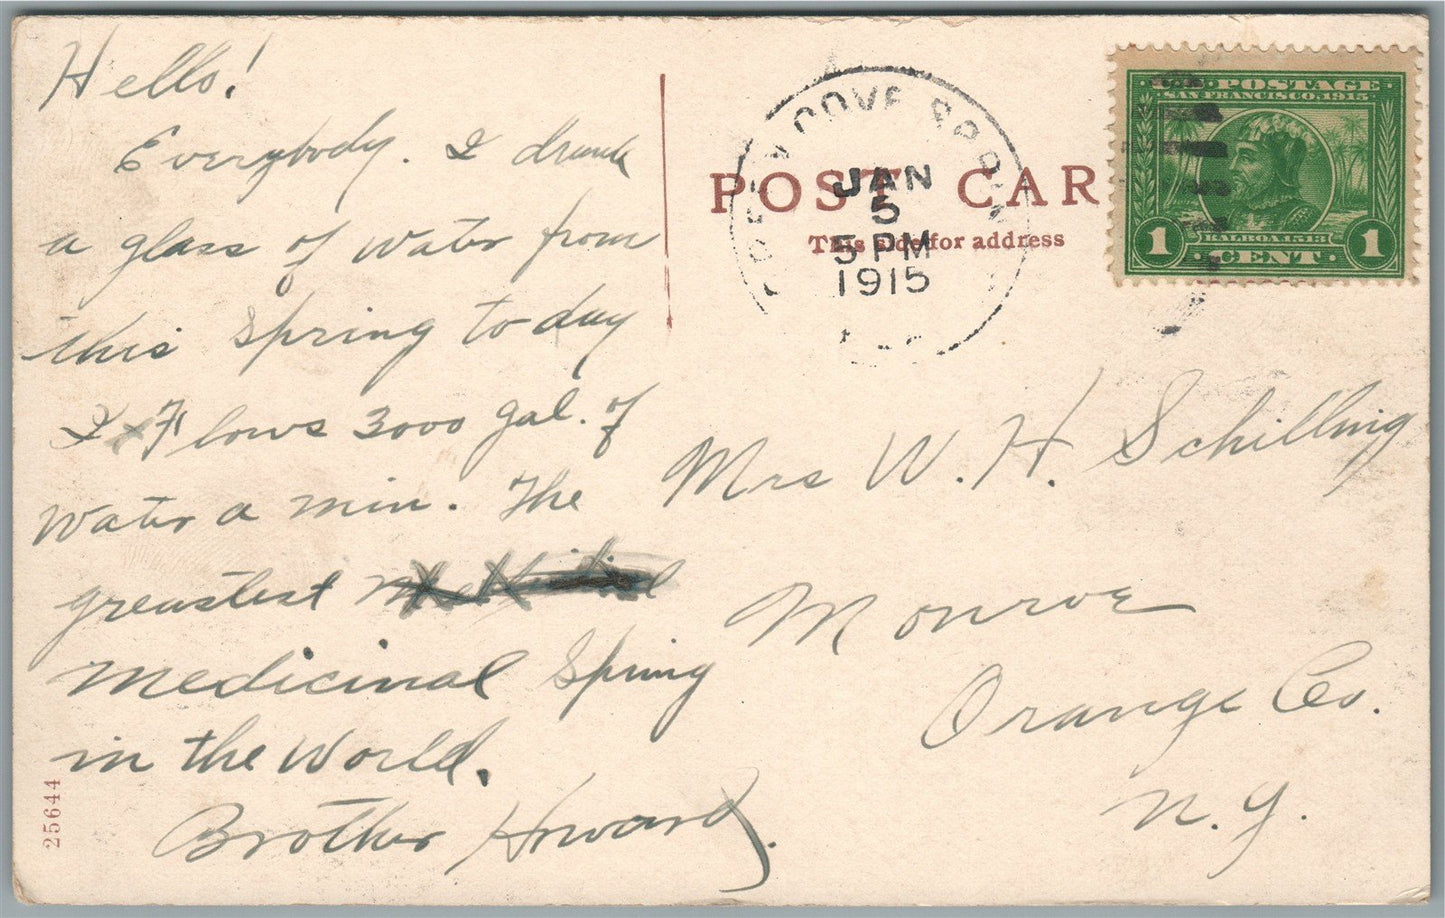 Hello!
Everybody. I drank
a glass of water from
this spring today
I Flows 3000 gal. of
water a min. The
greastest
medicinal spring
in the World.
Brother Howard.
25644
GREEN COVE SPRIN
JAN
5
5 PM
1915
POST CAR
This side for address
U.S. POSTAGE
SAN FRANCISCO, 1915
BALBOA, 1513
1 CENT 1
Mrs W. H. Schilling
Monroe
Orange Co.
N. Y.